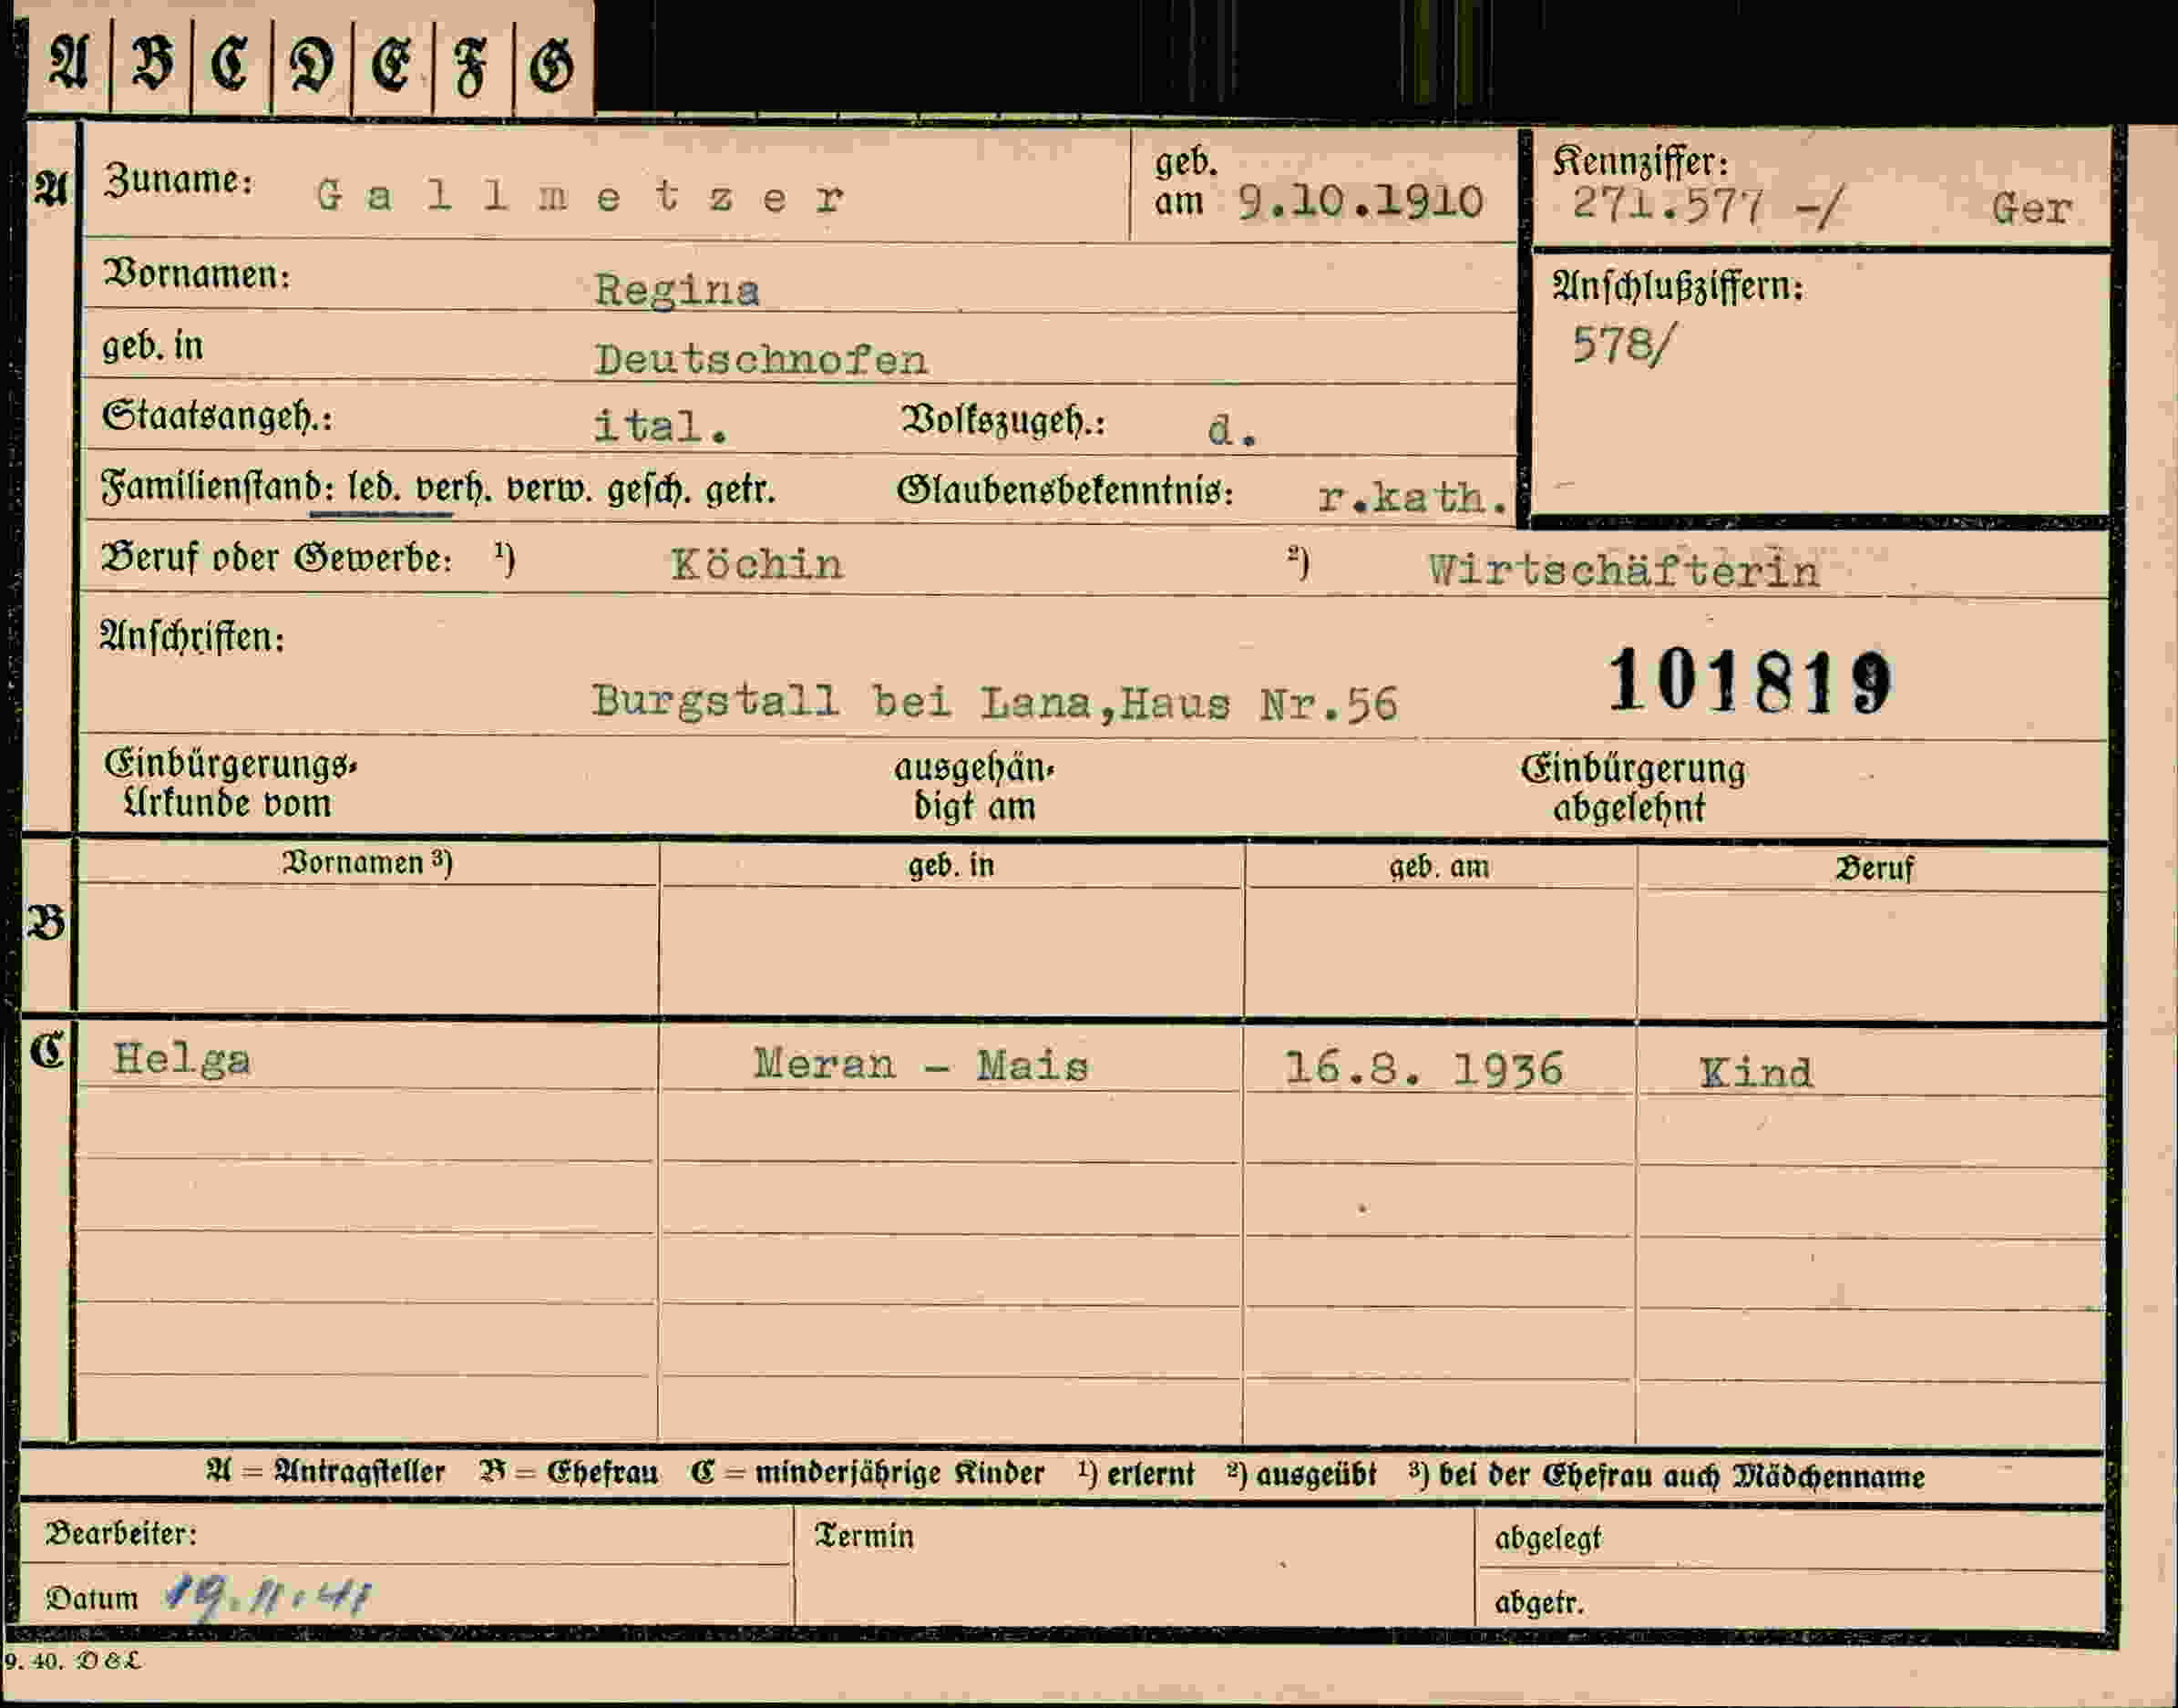 A B C D E F G
A Zuname: Gallmetzer geb. am 9.10.1910 Kennziffer: 271.577 -/ Ger
Vornamen: Regina Anschlußziffern:
geb. in Deutschnofen 578/
Staatsangeh.: ital. Volkszugeh.: d.
Familienstand: led. verh. verw. gesch. getr. Glaubensbekenntnis: r.kath.
Beruf oder Gewerbe: ¹) Köchin ²) Wirtschäfterin
Anschriften:
101819
Burgstall bei Lana,Haus Nr.56
Einbürgerungs- ausgehän- Einbürgerung
Urkunde vom digt am abgelehnt
Vornamen ³) geb. in geb. am Beruf
B
C Helga Meran - Mais 16.8. 1936 Kind
A = Antragsteller B = Ehefrau C = minderjährige Kinder ¹) erlernt ²) ausgeübt ³) bei der Ehefrau auch Mädchenname
Bearbeiter: Termin abgelegt
Datum 19.11.41 abgetr.
9. 40. D & L